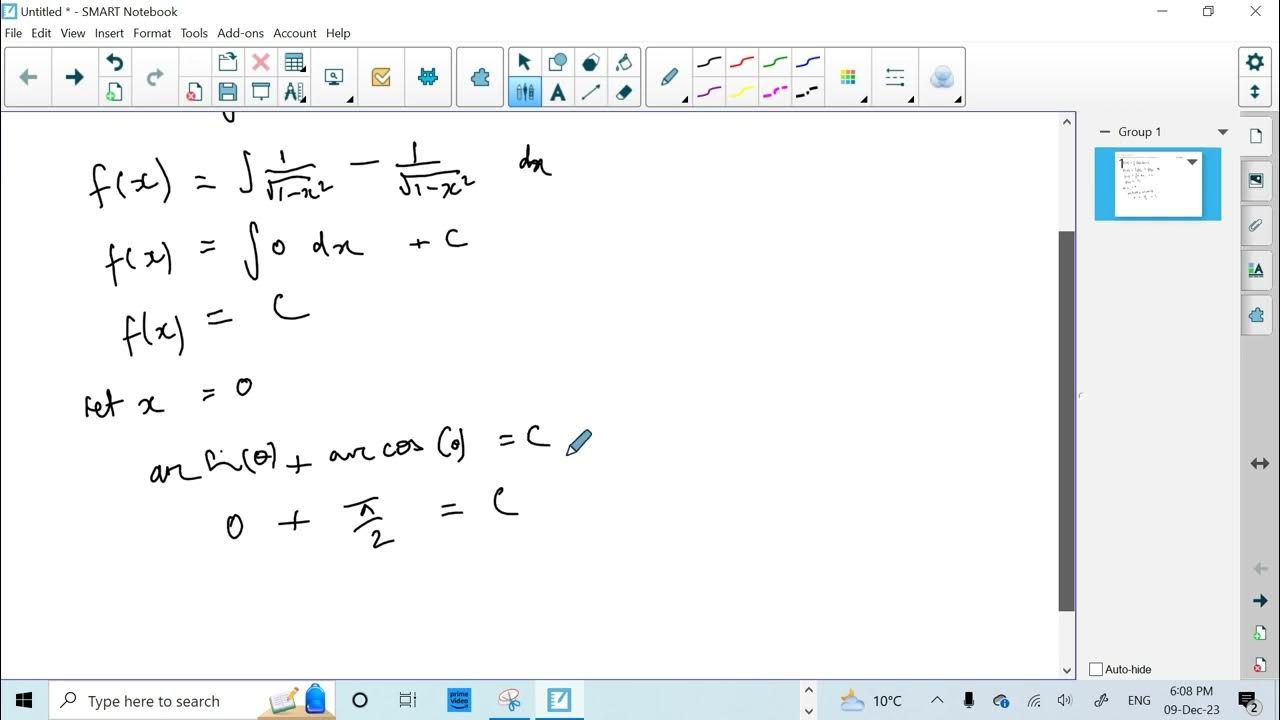 Untitled * - SMART Notebook
File Edit View Insert Format Tools Add-ons Account Help
Group 1
1
f(x) = ∫ 1/√1-x² - 1/√1-x² dx
f(x) = ∫ 0 dx + C
f(x) = C
let x = 0
arc sin(0) + arc cos (0) = C
0 + π/2 = C
Auto-hide
Type here to search
prime video
10°C
ENG
6:08 PM
09-Dec-23
2